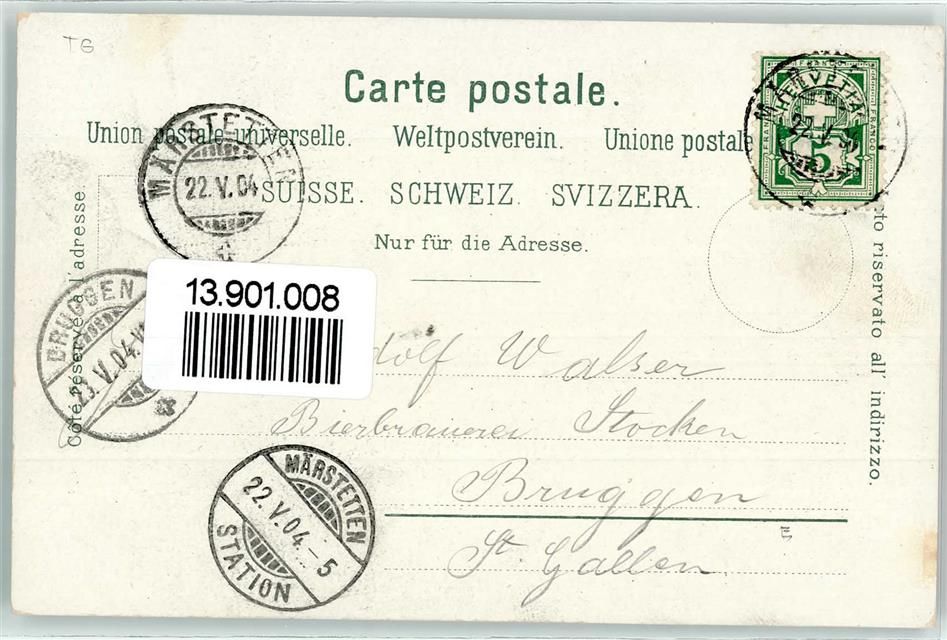 TG
Carte postale.
Union postale universelle. Weltpostverein. Unione postale
SUISSE. SCHWEIZ. SVIZZERA.
Nur für die Adresse.
FRANCO
HELVETIA
5
MÄRSTETTEN
22.V.04
Côté réservé à l'adresse
Lato riservato all' indirizzo.
BRUGGEN
23.V.04.
13.901.008
dolf Walser
Bierbrauerei Stocken
Bruggen
St Gallen
MÄRSTETTEN
22.V.04.-5
STATION
E